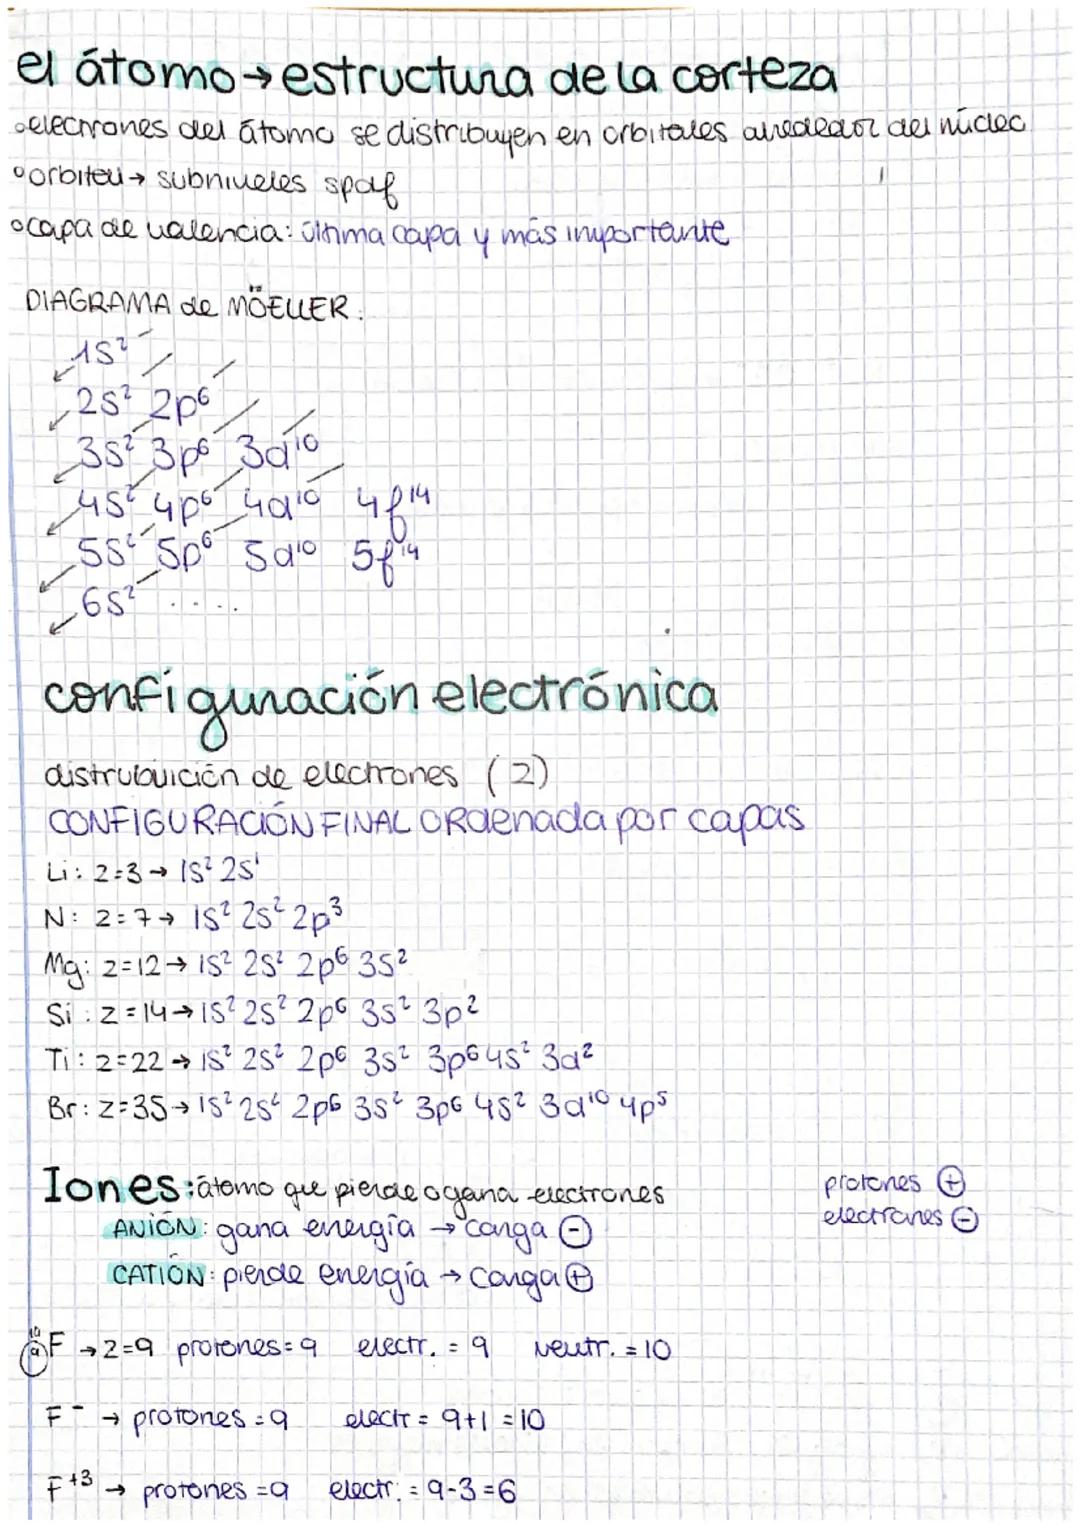 el átomo → estructura de la corteza
electrones del átomo se distribuyen en orbitales alrededor del núcleo
orbital → subniveles spdf
capa de valencia: última capa y más importante
DIAGRAMA de MÖELLER.
1s²
2s² 2p⁶
3s² 3p⁶ 3d¹⁰
4s² 4p⁶ 4d¹⁰ 4f¹⁴
5s² 5p⁶ 5d¹⁰ 5f¹⁴
6s² .....
configuración electrónica
de electrones (2)
CONFIGURACIÓN FINAL ORdenada por capas
Li: z=3 → 1s² 2s¹
N: z=7 → 1s² 2s² 2p³
Mg: z=12 → 1s² 2s² 2p⁶ 3s²
Si: z=14 → 1s² 2s² 2p⁶ 3s² 3p²
Ti: z=22 → 1s² 2s² 2p⁶ 3s² 3p⁶ 4s² 3d²
Br: z=35 → 1s² 2s² 2p⁶ 3s² 3p⁶ 4s² 3d¹⁰ 4p⁵
Iones: átomo que pierde o gana electrones
protones ⊕
ANIÓN: gana energía → carga ⊖
electrones ⊖
CATIÓN: pierde energía → carga ⊕
F → z=9 protones=9 electr. = 9 neutr. = 10
F⁻ → protones = 9 electr = 9+1 = 10
F⁺³ → protones = 9 electr. = 9-3 = 6